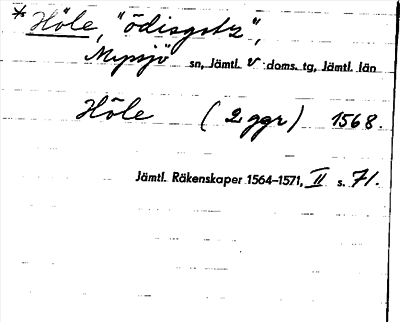 * Höle, "ödisgotz",
Mysjö sn, Jämtl. v. doms. tg, Jämtl. län
Höle (2 ggr) 1568.
Jämtl. Räkenskaper 1564-1571, II s. 71.